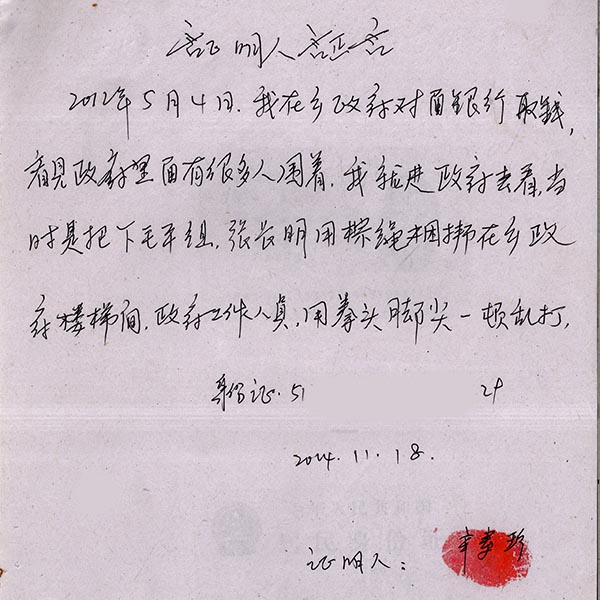 证明人证言
2012年5月4日.我在乡政府对面银行取钱,
看见政府里面有很多人围着.我就进政府去看,当
时是把下毛平组.张长明用棕绳捆绑在乡政
府楼梯间.政府工作人员,用拳头脚尖一顿乱打,
身份证.51 24
2014.11.18.
证明人: